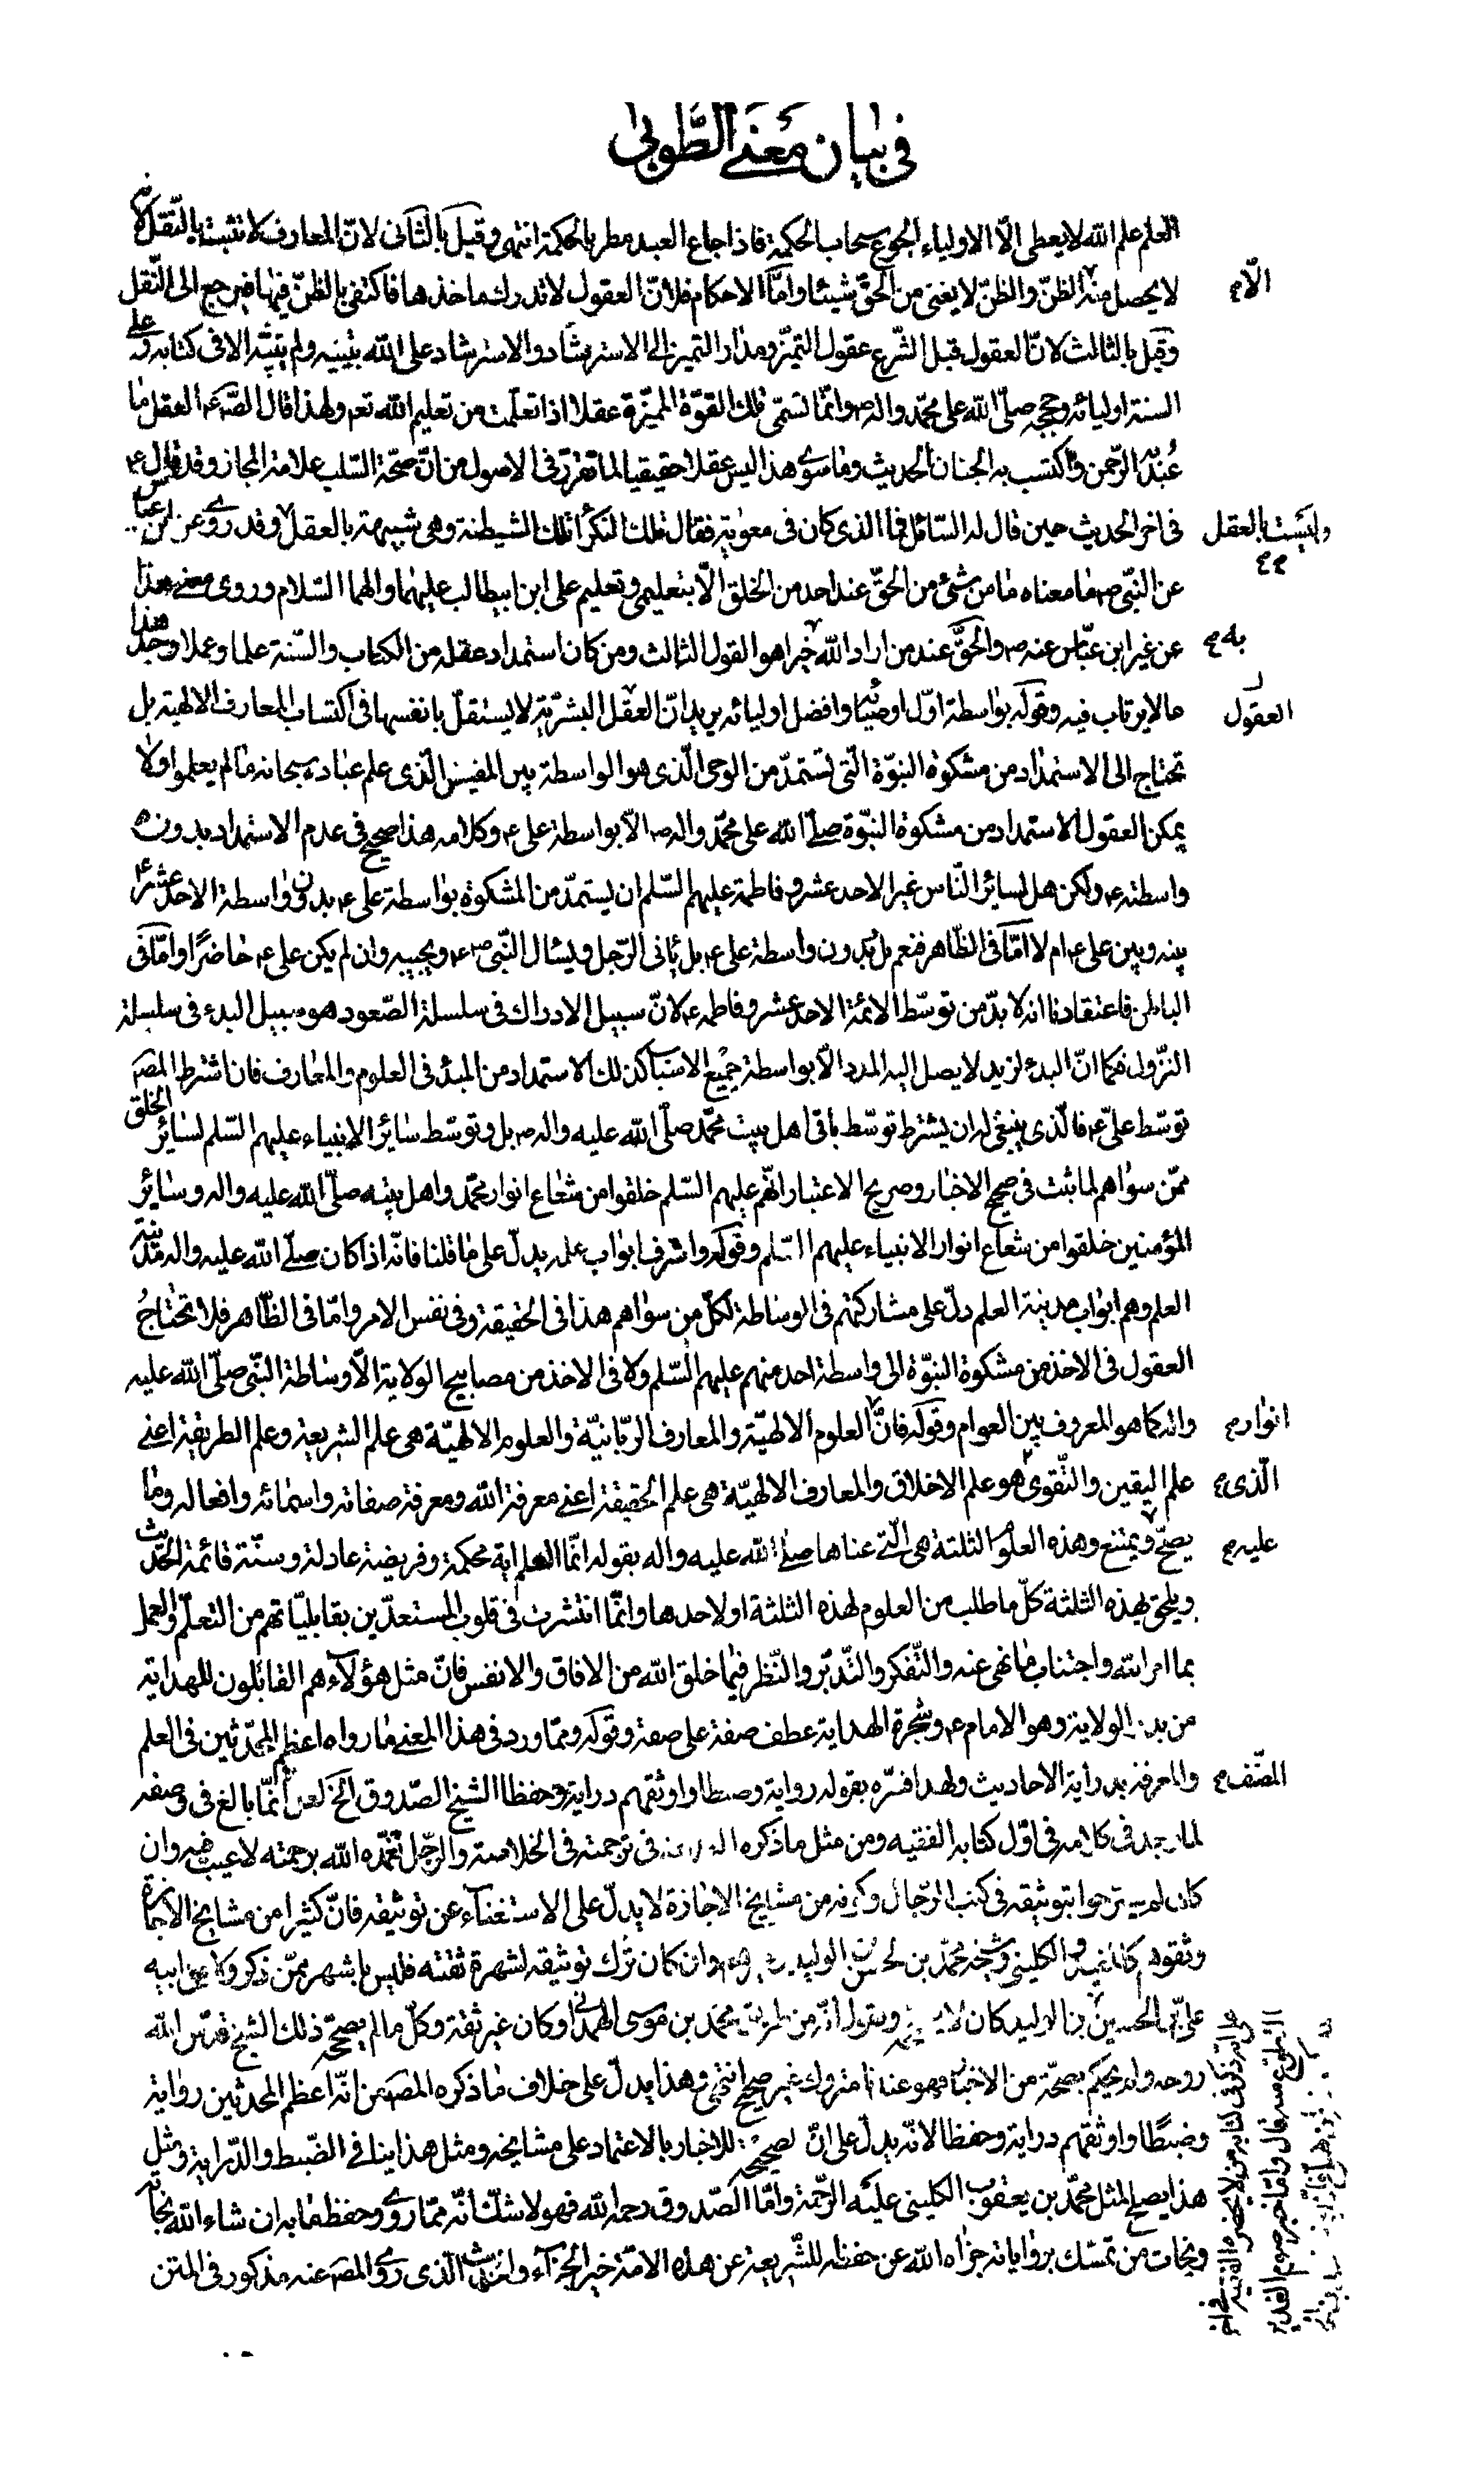 في بيان معنى الطوبى
العلم علم الله لا يعطى الا الاولياء الجوع سحاب الحكمة فاذا جاع العبد مطر بالحكمة انتهى وقيل بالثاني لان المعارف لا تثبت بالنقل لانه
لا يحصل منه الظن والظن لا يغنى من الحق شيئا واما الاحكام فلان العقول لا تدرك ماخذها فاكتفى بالظن فيها فيرجع الى النقل
الا م
وقيل بالثالث لان العقول قبل الشرع عقول التميز ومدار التميز الى الاسترشاد والاسترشاد على الله بتبينه ولم يبينه الا في كتابه وعلى
السنة اوليائه وحججه صلى الله على محمد واله ص وانما تسمى تلك القوة المميزة عقلا اذا تعلمت من تعليم الله تعم ولهذا قال الص ع العقل ما
عبد به الرحمن واكتسب به الجنان الحديث وما سوى هذا ليس عقلا حقيقيا لما تقرر في الاصول من ان صحة السلب علامة المجاز وقد قال ع
في اخر الحديث حين قال له السائل فما الذي كان في معوية فقال تلك النكراء تلك الشيطنة وهي شبيهة بالعقل وقد روى عن ابن عباس
وليست بالعقل
عن النبي ص ما معناه ما من شئ من الحق عند احد من الخلق الا بتعليمي وتعليم على ابن ابيطالب عليهما والهما السلام وروى معنى هذا
عن غير ابن عباس عنه ص والحق عند من اراد الله خيرا هو القول الثالث ومن كان استمداد عقله من الكتاب والسنة علما وعملا وجد هذا
به م
مما لا يرتاب فيه وقوله بواسطة اول اوصيائه وافضل اوليائه يريد ان العقل البشرية لا يستقل بانفسها في اكتساب المعارف الالهية بل
العقول
تحتاج الى الاستمداد من مشكوة النبوة التي تستمد من الوحي الذي هو الواسطة بين المفيض الذي علم عباده سبحانه ما لم يعلموا ولا
يمكن العقول الاستمداد من مشكوة النبوة صلى الله على محمد واله ص الا بواسطة على ع وكلامه هذا صحيح في عدم الاستمداد بدون
واسطته ع ولكن هل لسائر الناس غير الاحد عشر وفاطمة عليهم السلم ان يستمد من المشكوة بواسطة على ع بدون واسطة الاحد عشر ع
بينه وبين على ع ام لا اما في الظاهر فنعم بل بدون واسطة على ع بل ياتي الرجل ويسئال النبي ص ع ويجيبه وان لم يكن على ع حاضرا واما في
الباطن فاعتقادنا انه لا بد من توسط الائمة الاحد عشر وفاطمة ع لان سبيل الادراك في سلسلة الصعود هو سبيل البدء في سلسلة
النزول فكما ان البدء لزيد لا يصل اليه المدد الا بواسطة جميع الاسباب كذلك الاستمداد من المبدء في العلوم والمعارف فان اشترط المص
توسط على ع فالذي ينبغي له ان يشترط توسط باقى اهل بيت محمد صلى الله عليه واله ص بل وتوسط سائر الانبياء عليهم السلم لسائر الخلق
ممن سواهم لما ثبت في صحيح الاخبار وصريح الاعتبار انهم عليهم السلم خلقوا من شعاع انوار محمد واهل بيته صلى الله عليه واله وسائر
المؤمنين خلقوا من شعاع انوار الانبياء عليهم السلم وقوله واشرف ابواب علمه يدل على ما قلنا فانه اذا كان صلى الله عليه واله مدينة
العلم وهم ابواب مدينة العلم دل على مشاركتهم في الوساطة لكل من سواهم هذا في الحقيقة وفي نفس الامر واما في الظاهر فلا تحتاج
العقول في الاخذ من مشكوة النبوة الى واسطة احد منهم عليهم السلم ولا في الاخذ من مصابيح الولاية الا وساطة النبي صلى الله عليه
واله كما هو المعروف بين العوام وقوله فان العلوم الالهية والمعارف الربانية والعلوم الالهية هى علم الشريعة وعلم الطريقة اعنى
انوار م
علم اليقين والتقوى هو علم الاخلاق والمعارف الالهية هى علم الحقيقة اعنى معرفة الله ومعرفة صفاته واسمائه وافعاله وما
الذي م
يصح ويمتنع وهذه العلوم الثلثة هى التي عناها صلى الله عليه واله بقوله انما العلم اية محكمة وفريضة عادلة وسنة قائمة الحديث
عليه م
ويلحق بهذه الثلثة كل ما طلب من العلوم لهذه الثلثة او لاحدها وانما انتشرت في قلوب المستعدين بقابلياتهم من التعلم والعمل
بما امر الله واجتناب ما نهى عنه والتفكر والتدبر والنظر فيما خلق الله من الافاق والانفس فان مثل هؤلاء هم القابلون للهداية
من الولاية وهو الامام ع وشجرة الهداية عطف صفة على صفة وقوله ومما ورد في هذا المعنى ما رواه اعظم المحدثين في العلم
والمعرفة بدراية الاحاديث ولهذا فسره بقوله رواية وضبطا واوثقهم دراية وحفظا الشيخ الصدوق الخ لعل انما بالغ في وصفه
المصنف م
لما يجد في كلامه في اول كتابه الفقيه ومن مثل ما ذكره في ترجمته في الخلاصة والرجل تغمده الله برحمته لا عيب فيه وان
كان لم يصرحوا بتوثيقه في كتب الرجال وكونه من مشايخ الاجازة لا يدل على الاستغناء عن توثيقه فان كثيرا من مشايخ الاجازة
وثقوه كالمفيد والكليني وشيخه محمد بن الحسن الوليد وان كان ترك توثيقه لشهرة ثقته فليس باشهر ممن ذكر ولا من ابيه
على بن الحسين الوليد كان ويقول انه من طريق محمد بن موسى الهمداني وكان غير ثقة وكل ما لم يصححه ذلك الشيخ قدس الله
روحه ولم يحكم بصحته من الاخبار فهو عندنا متروك غير صحيح انتهى وهذا يدل على خلاف ما ذكره المص من انه اعظم المحدثين رواية
وضبطا واوثقهم دراية وحفظا لانه يدل على ان تصحيحه للاخبار بالاعتماد على مشايخه ومثل هذا ينافي الضبط والدراية ومثل
هذا يصلح لمثل محمد بن يعقوب الكليني عليه الرحمة واما الصدوق رحمه الله فهو لا شك انه مما روى وحفظ ما به ان شاء الله نجاته
ونجات من تمسك برواياته جزاه الله عن حفظه للشريعة عن هذه الامة خير الجزاء والحديث الذي روى المص عنه مذكور في المتن